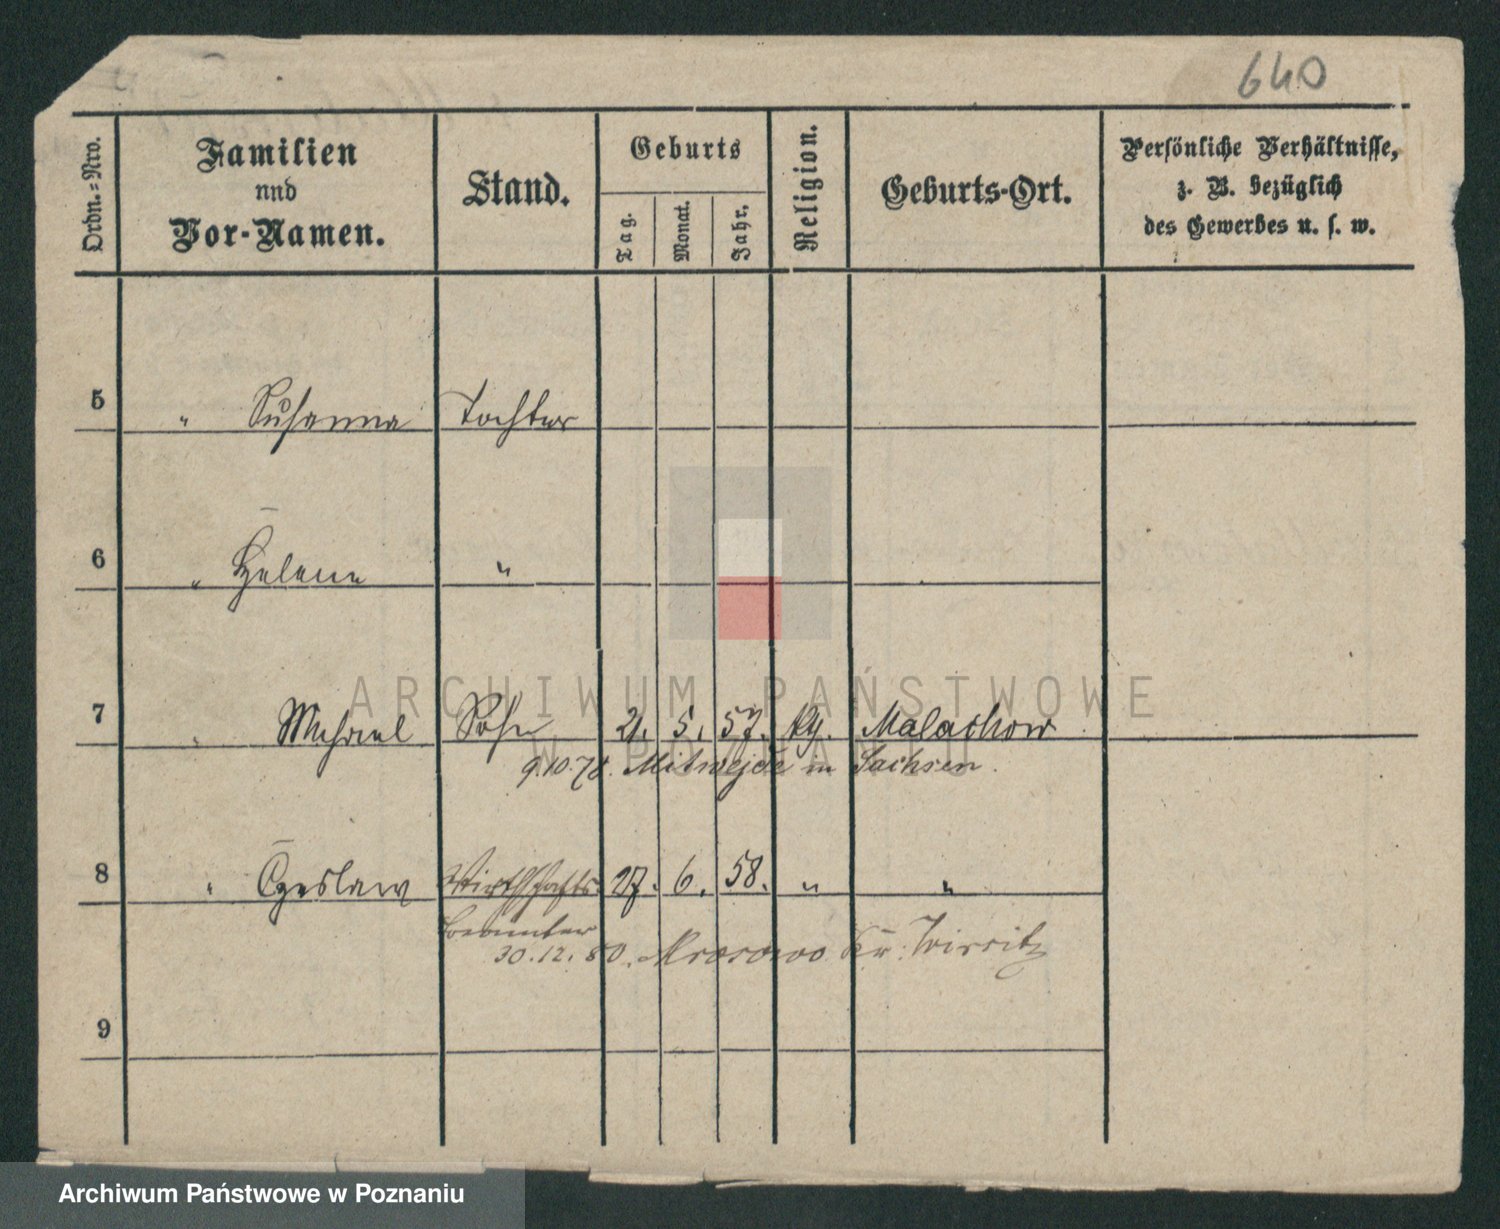 640
Ordn.=Nro.
Familien
nnd
Vor-Namen.
Stand.
Geburts
Tag.
Monat.
Jahr.
Religion.
Geburts-Ort.
Persönliche Verhältnisse,
z. B. bezüglich
des Gewerbes u. s. w.
5 " Susanna Tochter
6 " Helena "
ARCHIWUM PAŃSTWOWE
W POZNANIU
7 " Michael Sohn 21. 5. 57. kg. Malachow
9.10.78. Mitwejde in Sachsen.
8 " Czeslaw Wirthschafts 27. 6. 58. " "
beamter
30.12.80. Mrosowo Kr. Wirsitz
9
Archiwum Państwowe w Poznaniu